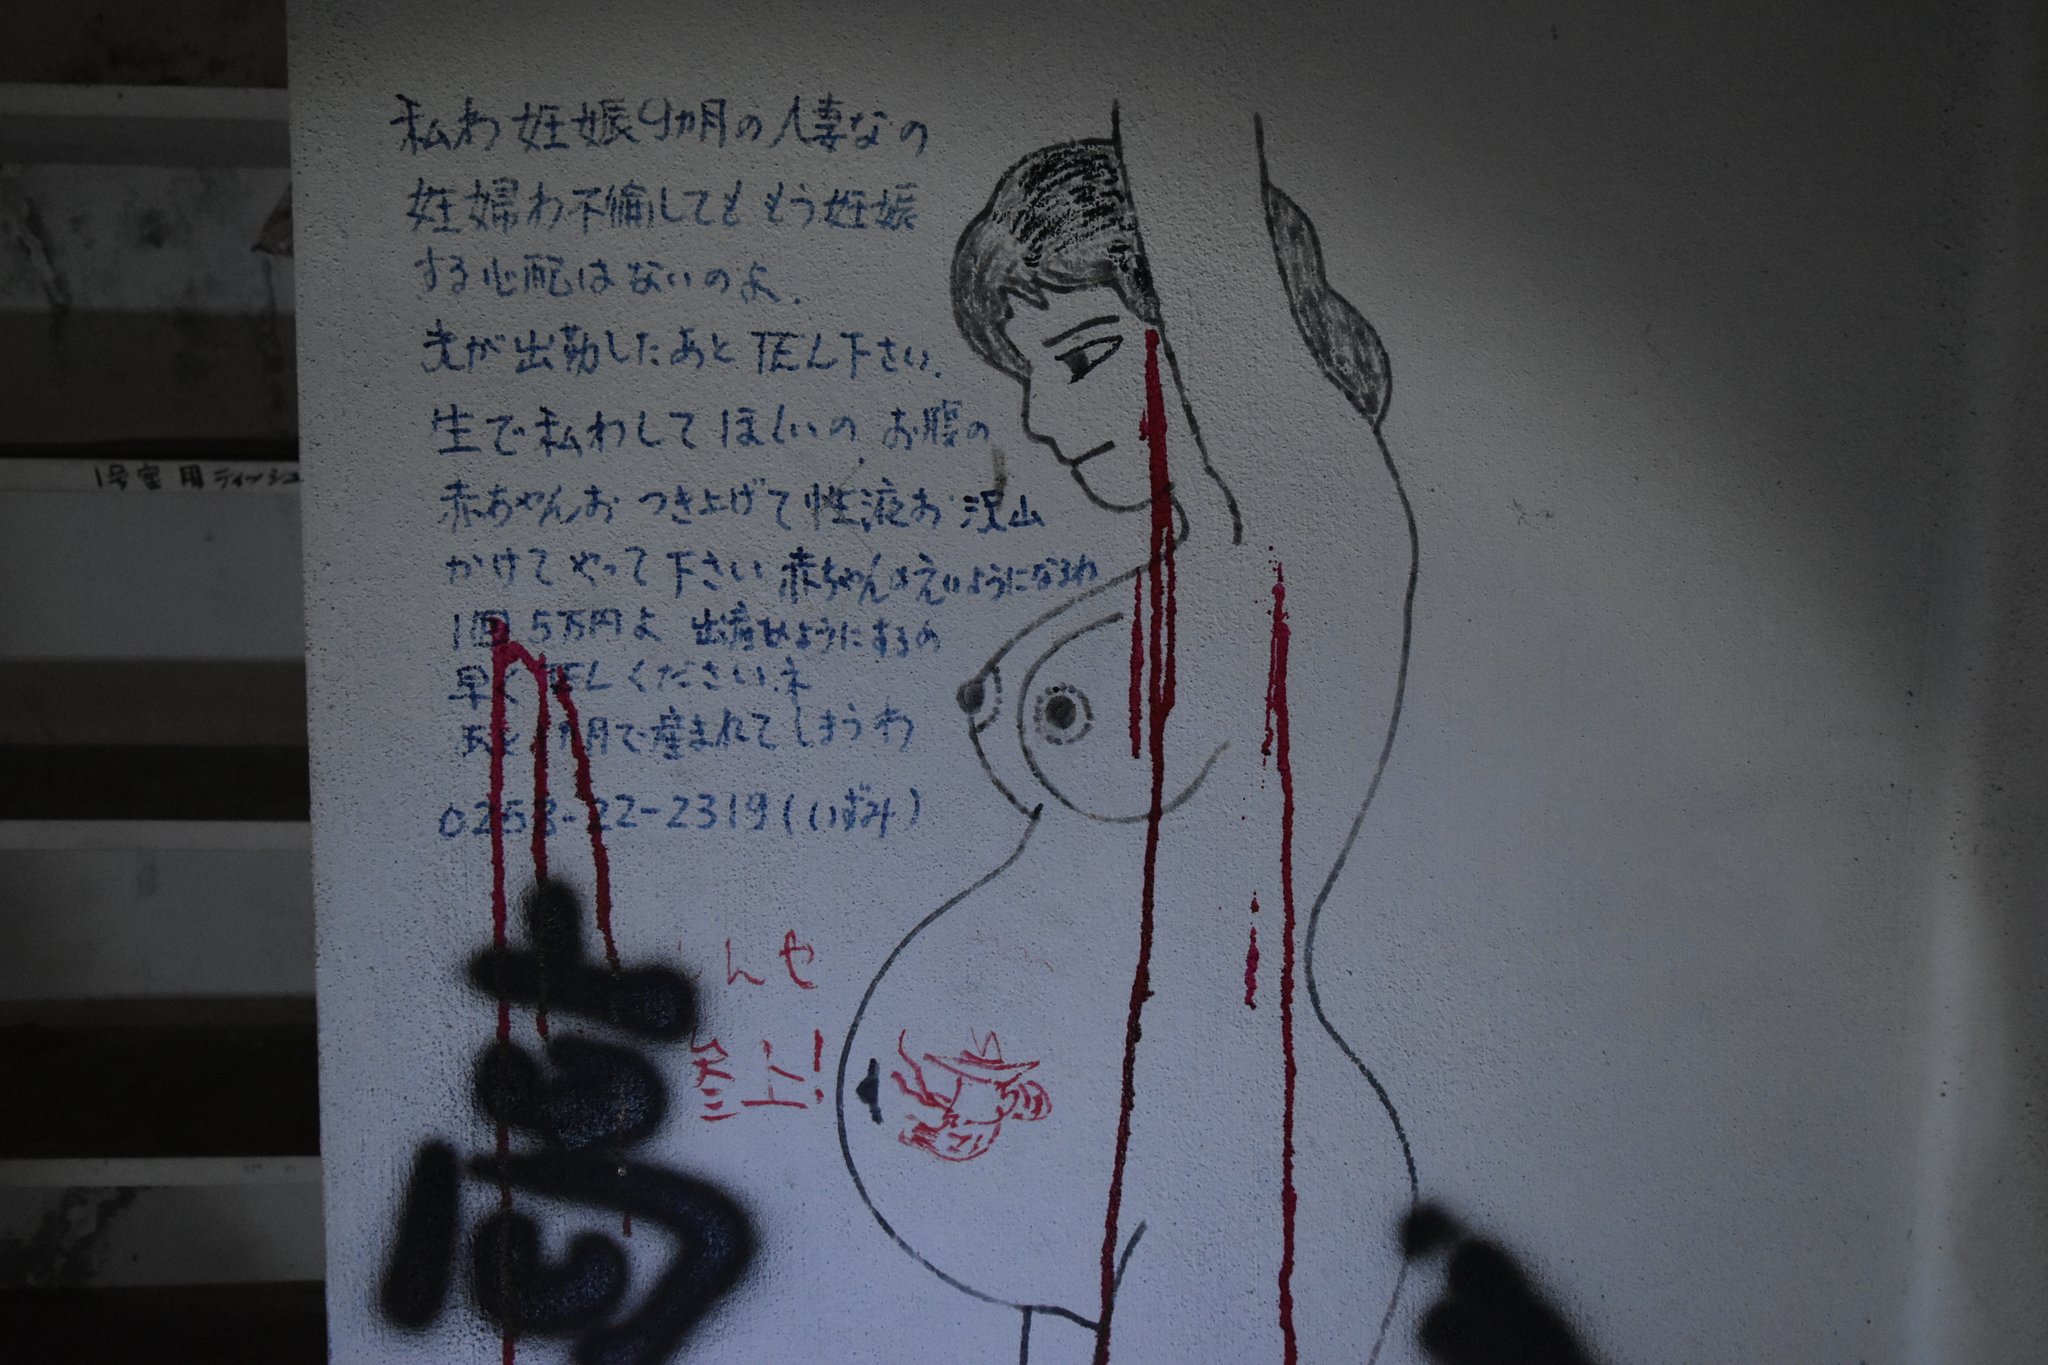 私わ妊娠9カ月の人妻なの
妊婦わ不倫してももう妊娠
する心配はないのよ.
夫が出勤したあとTEL下さい.
生で私わしてほしいの お腹の
赤ちゃんお つき上げて性液お 沢山
かけてやって下さい 赤ちゃんのえいようになるわ
1回 5万円よ 出産ひようにするの
早く TELくださいネ
あと 1カ月で産まれてしまうわ
-22-2319(いずみ)
んや
参上!
1号室用ティッシュ